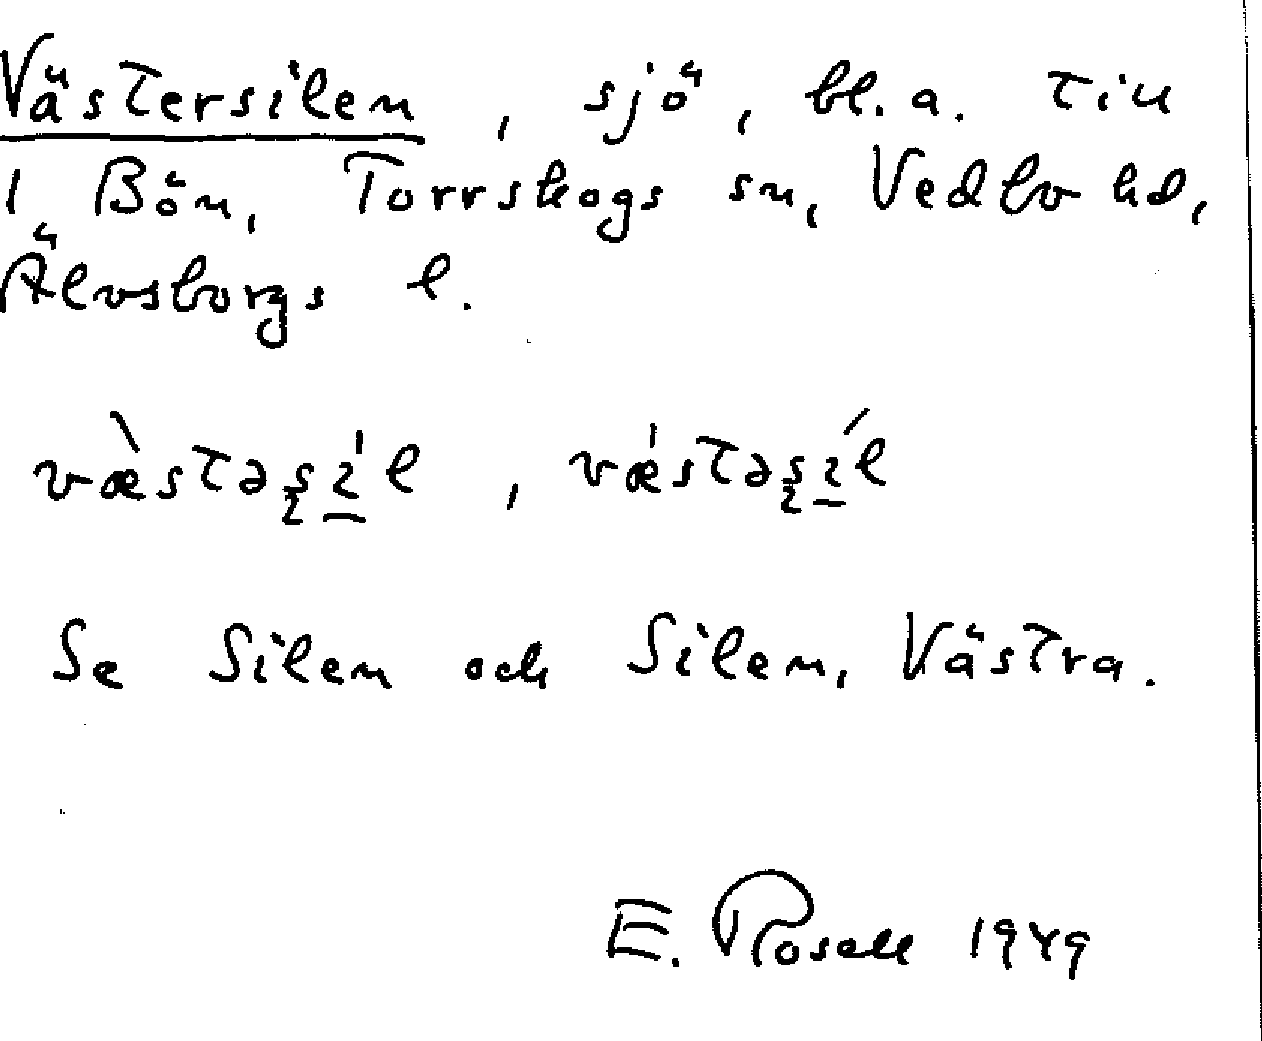 Västersilen, sjö, bl. a. till
1 Bön, Torrskogs sn, Vedbo hd,
Älvsborgs l.
væ̀stəʂi̱̍l, væ̍stəʂí̱l
Se Silen och Silen, Västra.
E. Rosell 1949